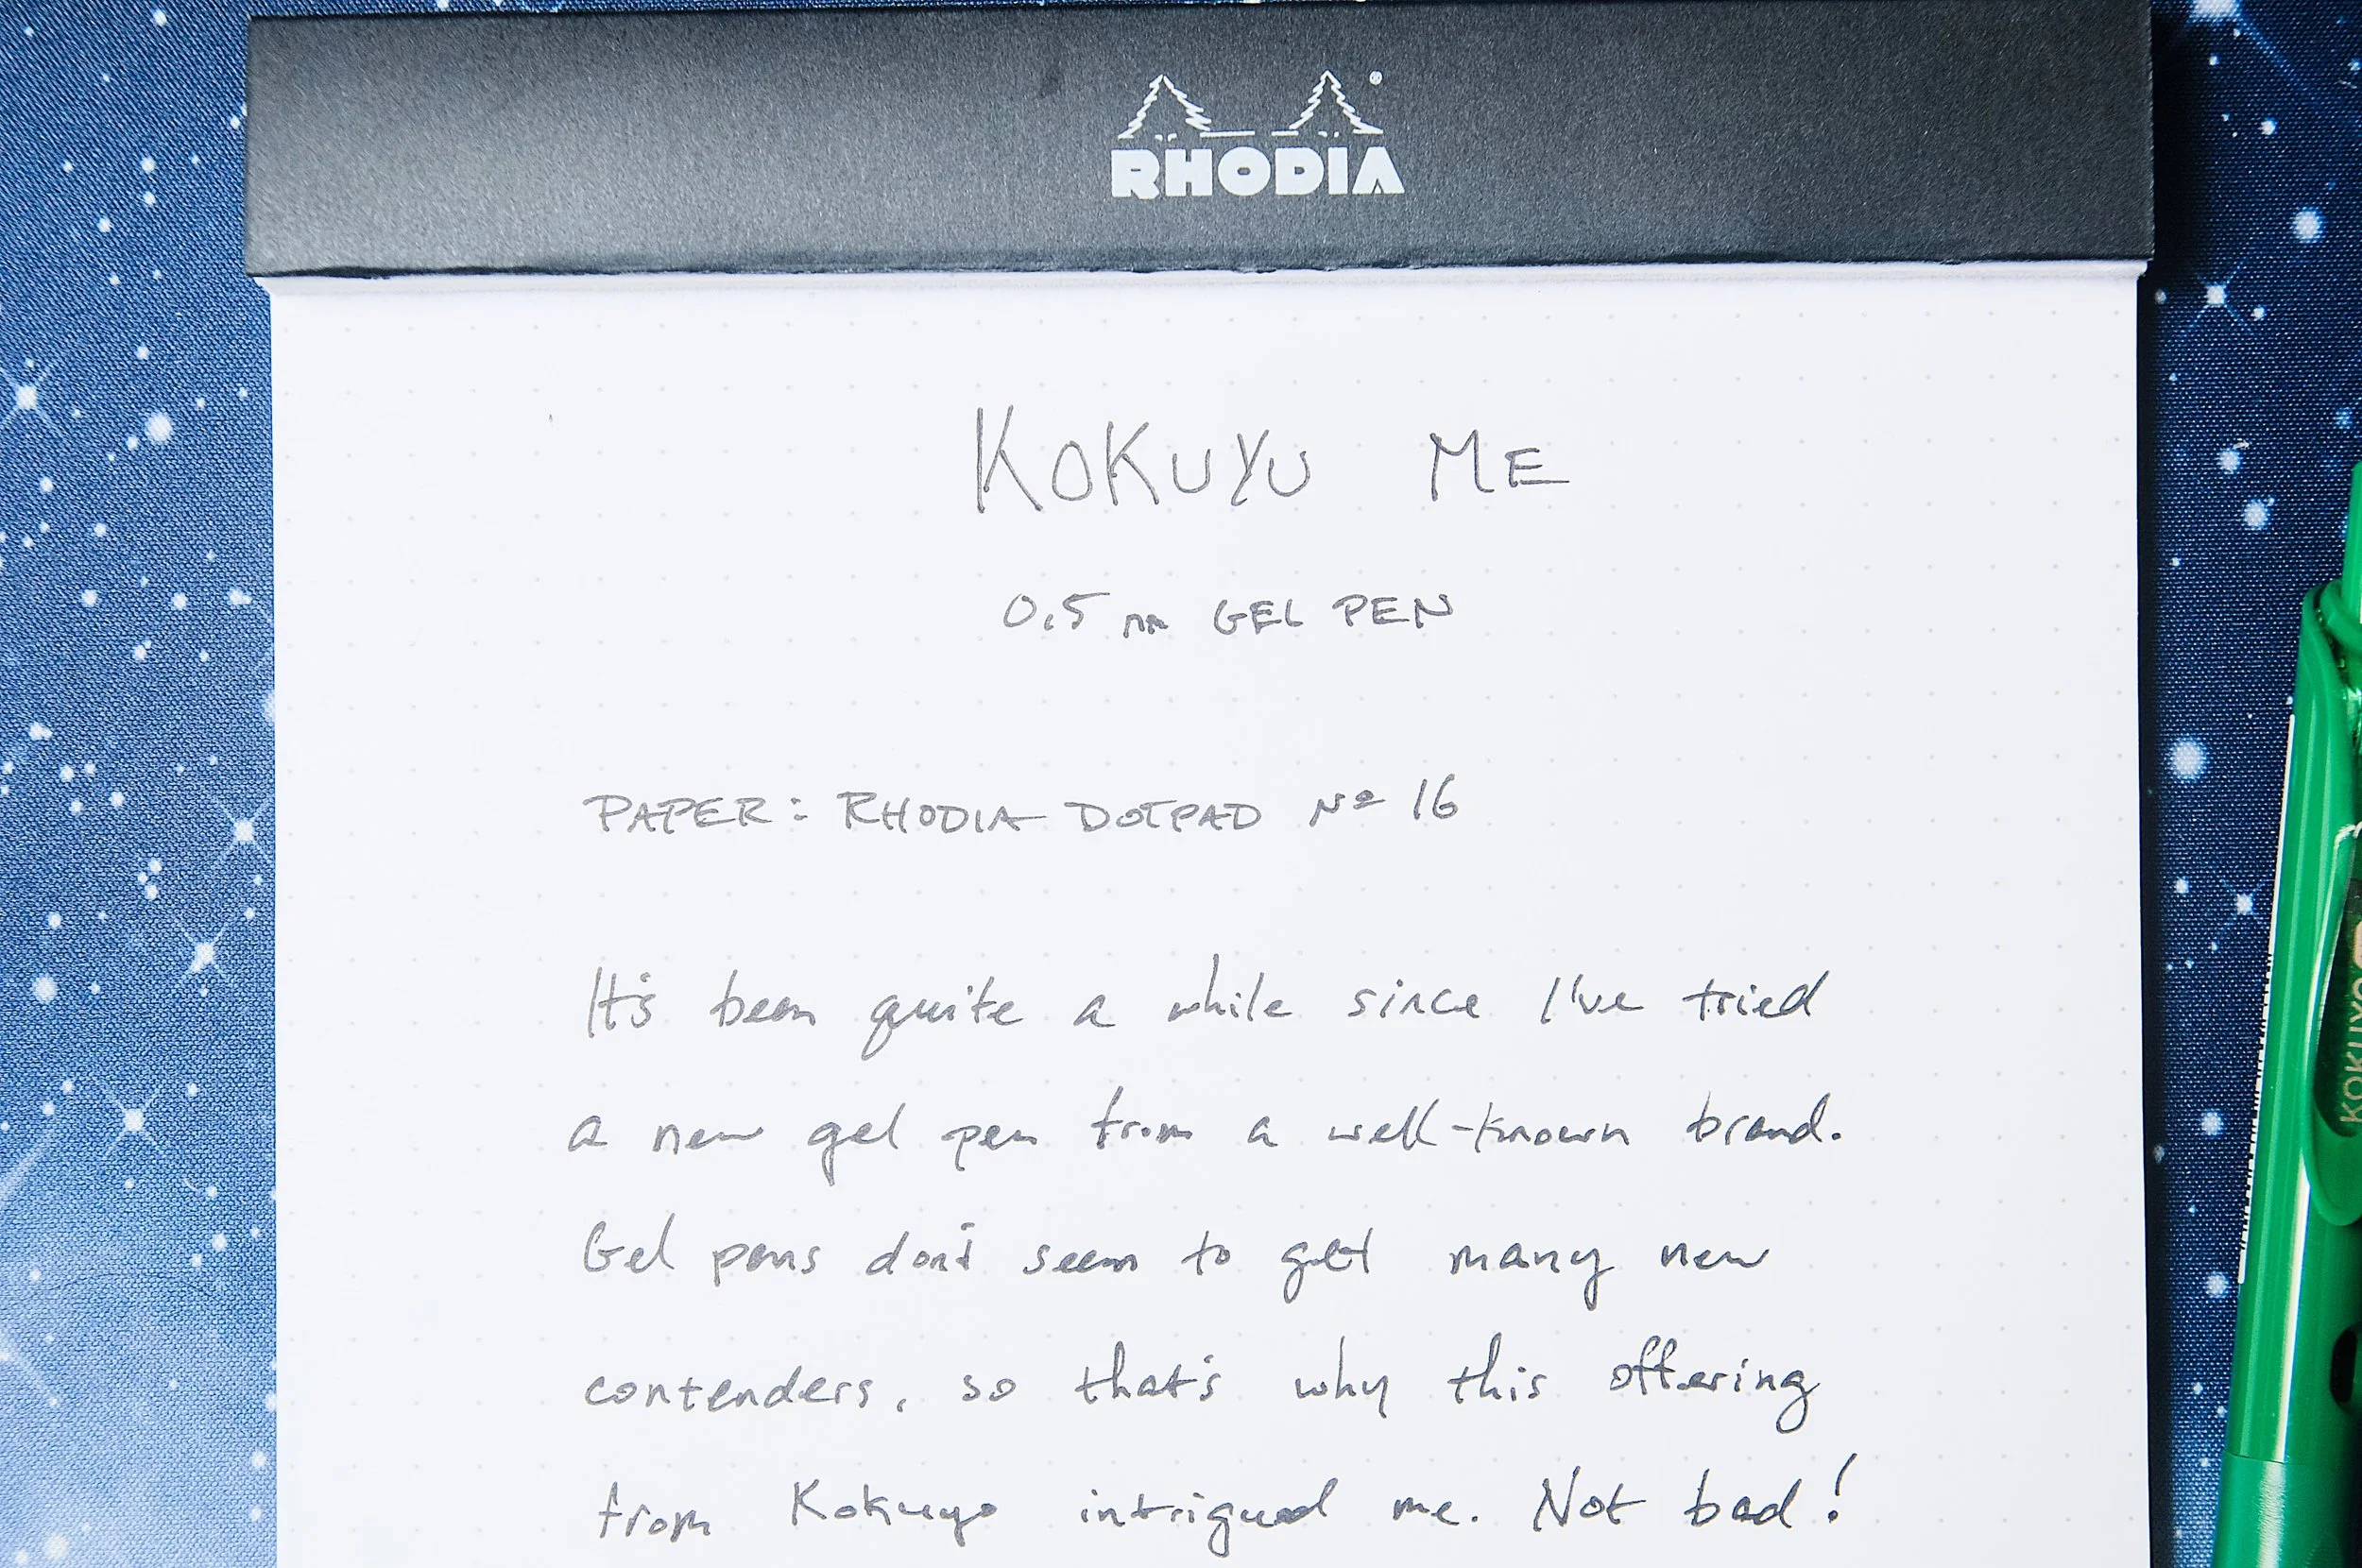 RHODIA
KOKUYU ME
0.5 mm GEL PEN
PAPER: RHODIA DOTPAD Nº 16
It's been quite a while since I've tried
a new gel pen from a well-known brand.
Gel pens don't seem to get many new
contenders, so that's why this offering
from Kokuyo intrigued me. Not bad!
KOKUYO